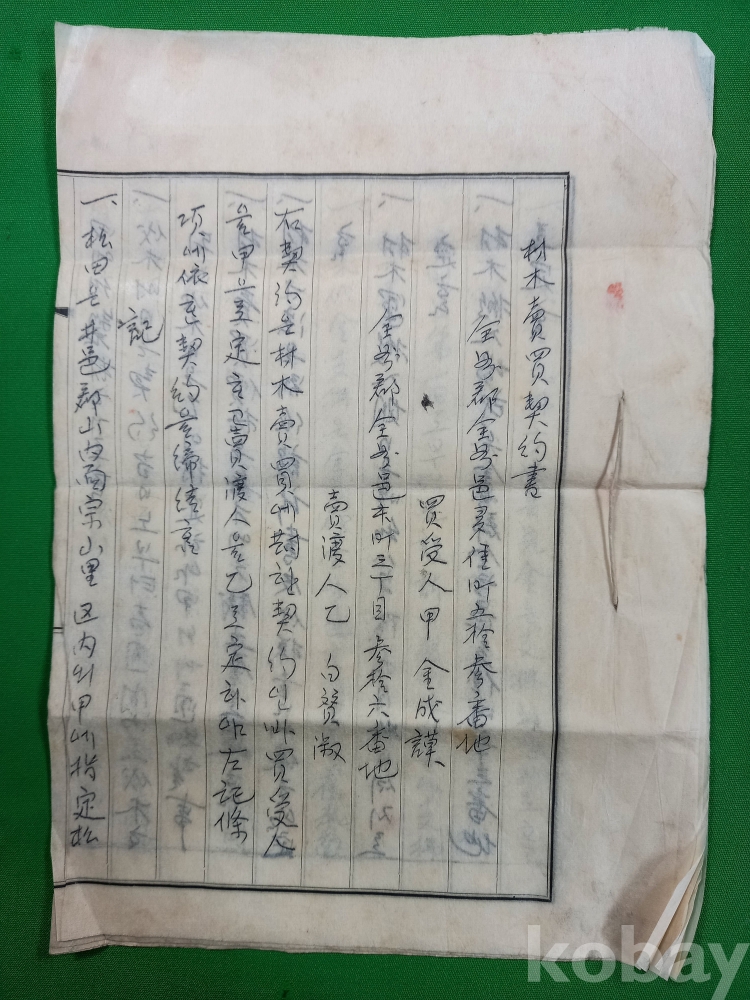 材木賣買契約書
全州郡全州邑 佳町五拾參番地
買受人 甲 金成謨
全州郡全州邑末町三丁目參拾六番地
賣渡人 乙 白贊淑
右契約은 材木賣買에 對한 契約인바 買受人
을 甲으로 定하고 賣渡人을 乙로 定하야 左記條
項에 依하 契約을 締結홈
記
一、松田은 井邑郡山內面宗山里 区内의 甲에 指定松
kobay